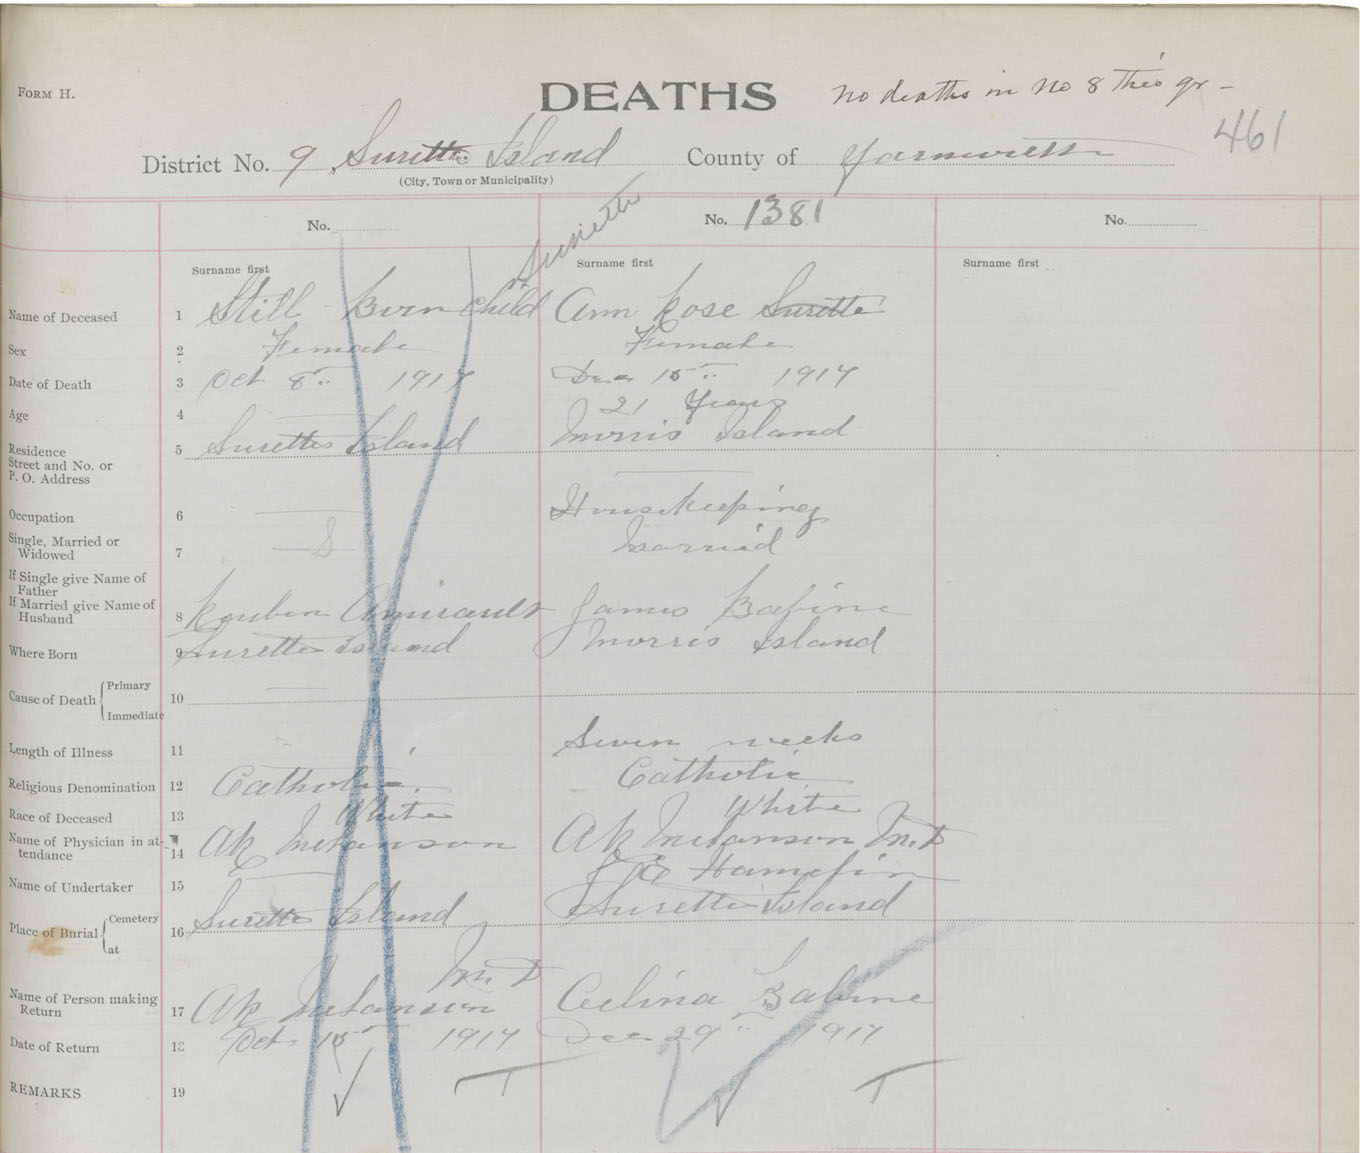 FORM H.
DEATHS
no deaths in No 8 this yr -
461
District No. 9, Surette Island County of Yarmouth
(City, Town or Municipality)
No.
No. 1381
No.
Surette
Surname first
Surname first
Surname first
Name of Deceased 1 Still Born Child Ann Rose Surette
Sex 2 Female Female
Date of Death 3 Oct 8 1917 Dec 15 1917
Age 4 21 Years
Residence Street and No. or P. O. Address 5 Surettes Island Morris Island
Occupation 6 Housekeeping
Single, Married or Widowed 7 S Married
If Single give Name of Father
If Married give Name of Husband 8 Reuben Amirault James Babine
Where Born 9 Surette Island Morris Island
Cause of Death { Primary
Immediate 10
Length of Illness 11 Seven weeks
Religious Denomination 12 Catholic Catholic
Race of Deceased 13 White White
Name of Physician in attendance 14 AP Melanson AP Melanson M.D
Name of Undertaker 15
Place of Burial { Cemetery
at 16 Surette Island Surette Island
M.D
Name of Person making Return 17 AP Melanson Celina Babine
Date of Return 18 Oct 15 1917 Dec 29 1917
REMARKS 19